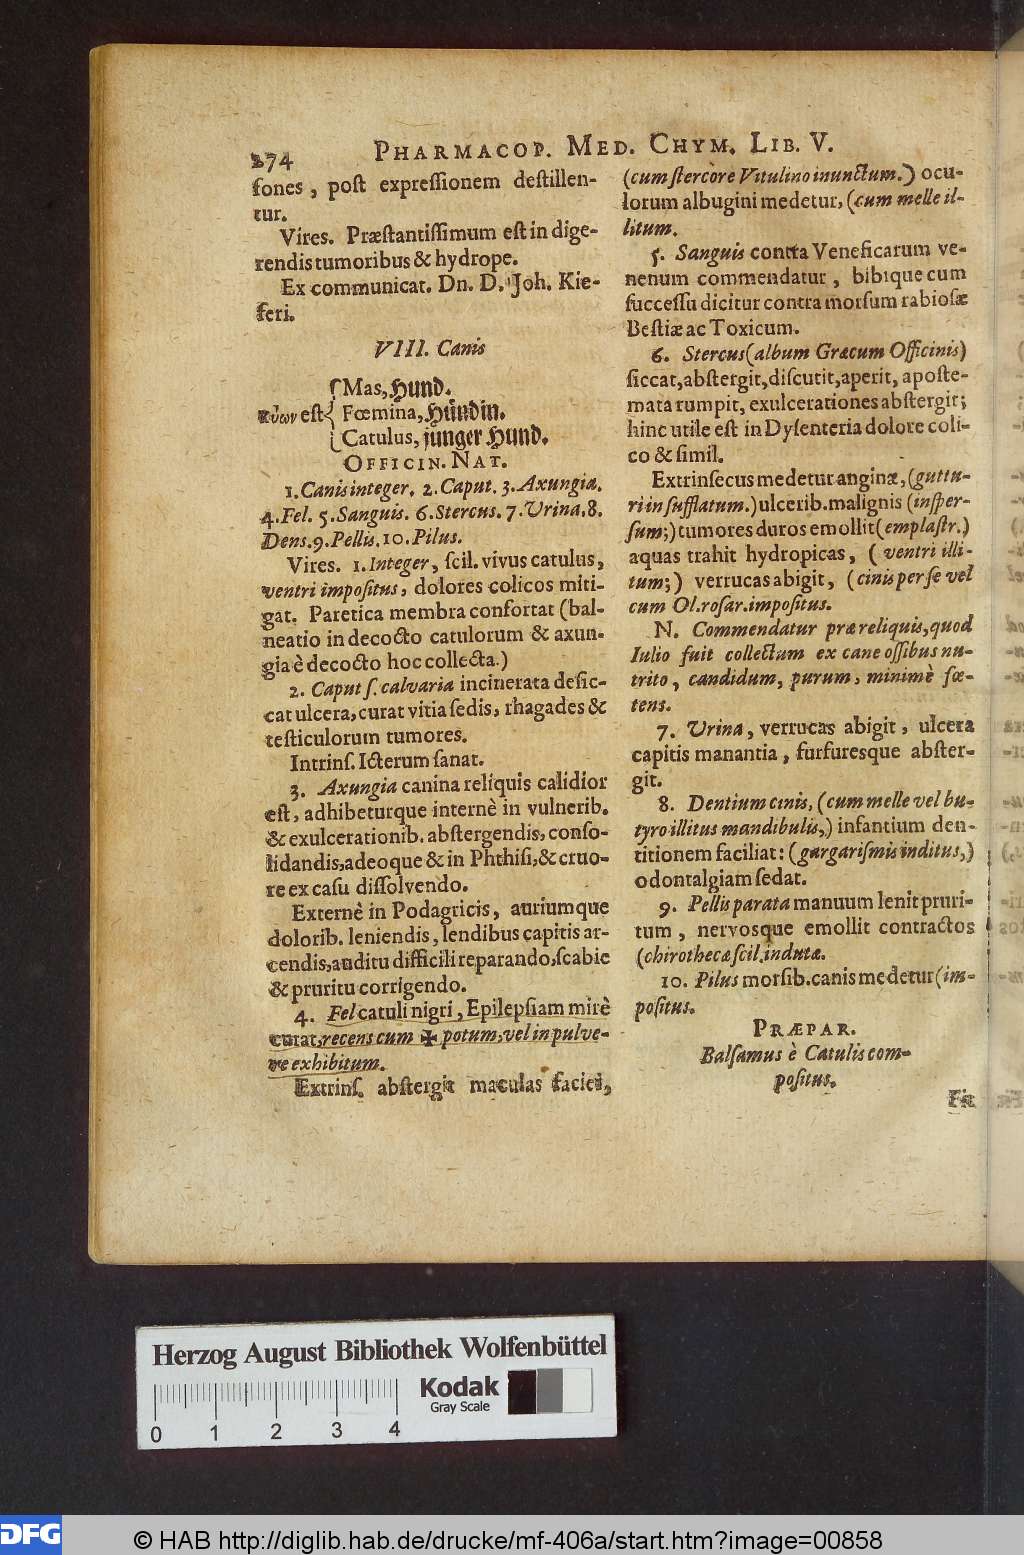 274 PHARMACOP. MED. CHYM. LIB. V.
ſones, poſt expreſſionem deſtillen-
tur.
Vires. Præſtantiſſimum eſt in dige-
rendis tumoribus & hydrope.
Ex communicat. Dn. D. Joh. Kie-
feri.
VIII. Canis
Mas, Hund.
κύων eſt Fœmina, Hündin.
Catulus, junger Hund.
OFFICIN. NAT.
1. Canis integer. 2. Caput. 3. Axungia.
4. Fel. 5. Sanguis. 6. Stercus. 7. Urina. 8.
Dens. 9. Pellis. 10. Pilus.
Vires. 1. Integer, ſcil. vivus catulus,
ventri impoſitus, dolores colicos miti-
gat. Paretica membra confortat (bal-
neatio in decocto catulorum & axun-
gia è decocto hoc collecta.)
2. Caput ſ. calvaria incinerata deſic-
cat ulcera, curat vitia ſedis, rhagades &
teſticulorum tumores.
Intrinſ. Icterum ſanat.
3. Axungia canina reliquis calidior
eſt, adhibeturque internè in vulnerib.
& exulcerationib. abſtergendis, conſo-
lidandis, adeoque & in Phthiſi, & cruo-
re ex caſu diſſolvendo.
Externè in Podagricis, auriumque
dolorib. leniendis, lendibus capitis ar-
cendis, auditu difficili reparando, ſcabie
& pruritu corrigendo.
4. Fel catuli nigri, Epilepſiam mirè
curat, recens cum ✠ potum, vel in pulve-
re exhibitum.
Extrinſ. abſtergit maculas faciei,
(cum ſtercore Vitulino inunctum.) ocu-
lorum albugini medetur, (cum melle il-
litum.
5. Sanguis contra Veneficarum ve-
nenum commendatur, bibique cum
ſucceſſu dicitur contra morſum rabioſæ
Beſtiæ ac Toxicum.
6. Stercus (album Græcum Officinis)
ſiccat, abſtergit, diſcutit, aperit, apoſte-
mata rumpit, exulcerationes abſtergit;
hinc utile eſt in Dyſenteria dolore coli-
co & ſimil.
Extrinſecus medetur anginæ, (guttu-
ri inſufflatum.) ulcerib. malignis (inſper-
ſum;) tumores duros emollit (emplaſtr.)
aquas trahit hydropicas, (ventri illi-
tum;) verrucas abigit, (cinis per ſe vel
cum Ol. roſar. impoſitus.
N. Commendatur præ reliquis, quod
Iulio fuit collectum ex cane oſſibus nu-
trito, candidum, purum, minimè fœ-
tens.
7. Urina, verrucas abigit, ulcera
capitis manantia, furfuresque abſter-
git.
8. Dentium cinis, (cum melle vel bu-
tyro illitus mandibulis,) infantium den-
titionem faciliat: (gargariſmis inditus,)
odontalgiam ſedat.
9. Pellis parata manuum lenit pruri-
tum, nervosque emollit contractos
(chirothecæ ſcil. indutæ.
10. Pilus morſib. canis medetur (im-
poſitus.
PRÆPAR.
Balſamus è Catulis com-
poſitus.
Herzog August Bibliothek Wolfenbüttel
Kodak
Gray Scale
0 1 2 3 4
DFG
© HAB http://diglib.hab.de/drucke/mf-406a/start.htm?image=00858